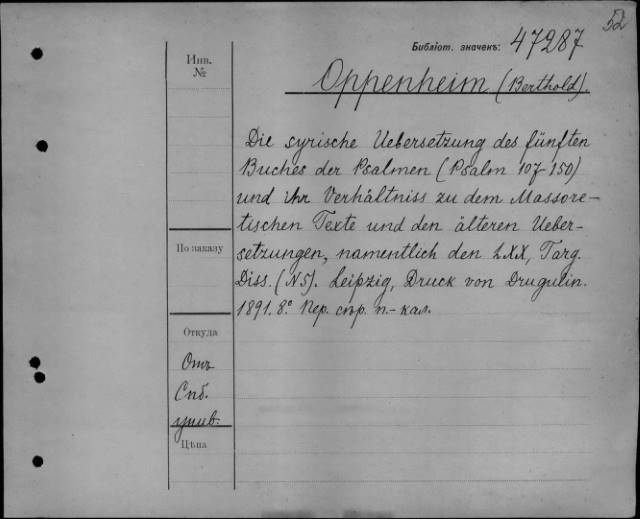 52
Библіот. значекъ: 47287
Инв.
№
Oppenheim (Berthold).
Die syrische Uebersetzung des fünften
Buches der Psalmen (Psalm 107-150)
und ihr Verhältniss zu dem Massore-
tischen Texte und den älteren Ueber-
setzungen, namentlich den LXX, Targ.
Diss. (N5). Leipzig, Druck von Drugulin.
1891. 8.° Пер. стр. п.-кал.
По заказу
Откуда
Отъ
Спб.
унив.
Цѣна